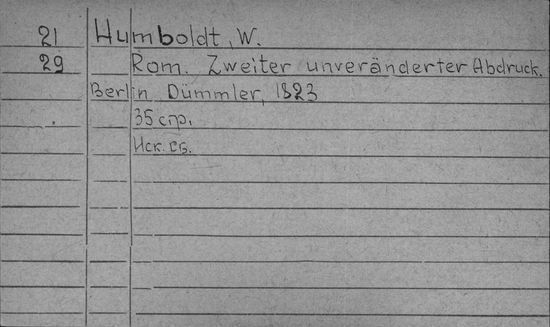 21 Humboldt, W.
29 Rom. Zweiter unveränderter Abdruck.
Berlin, Dümmler, 1823
35 стр.
Иск. св.